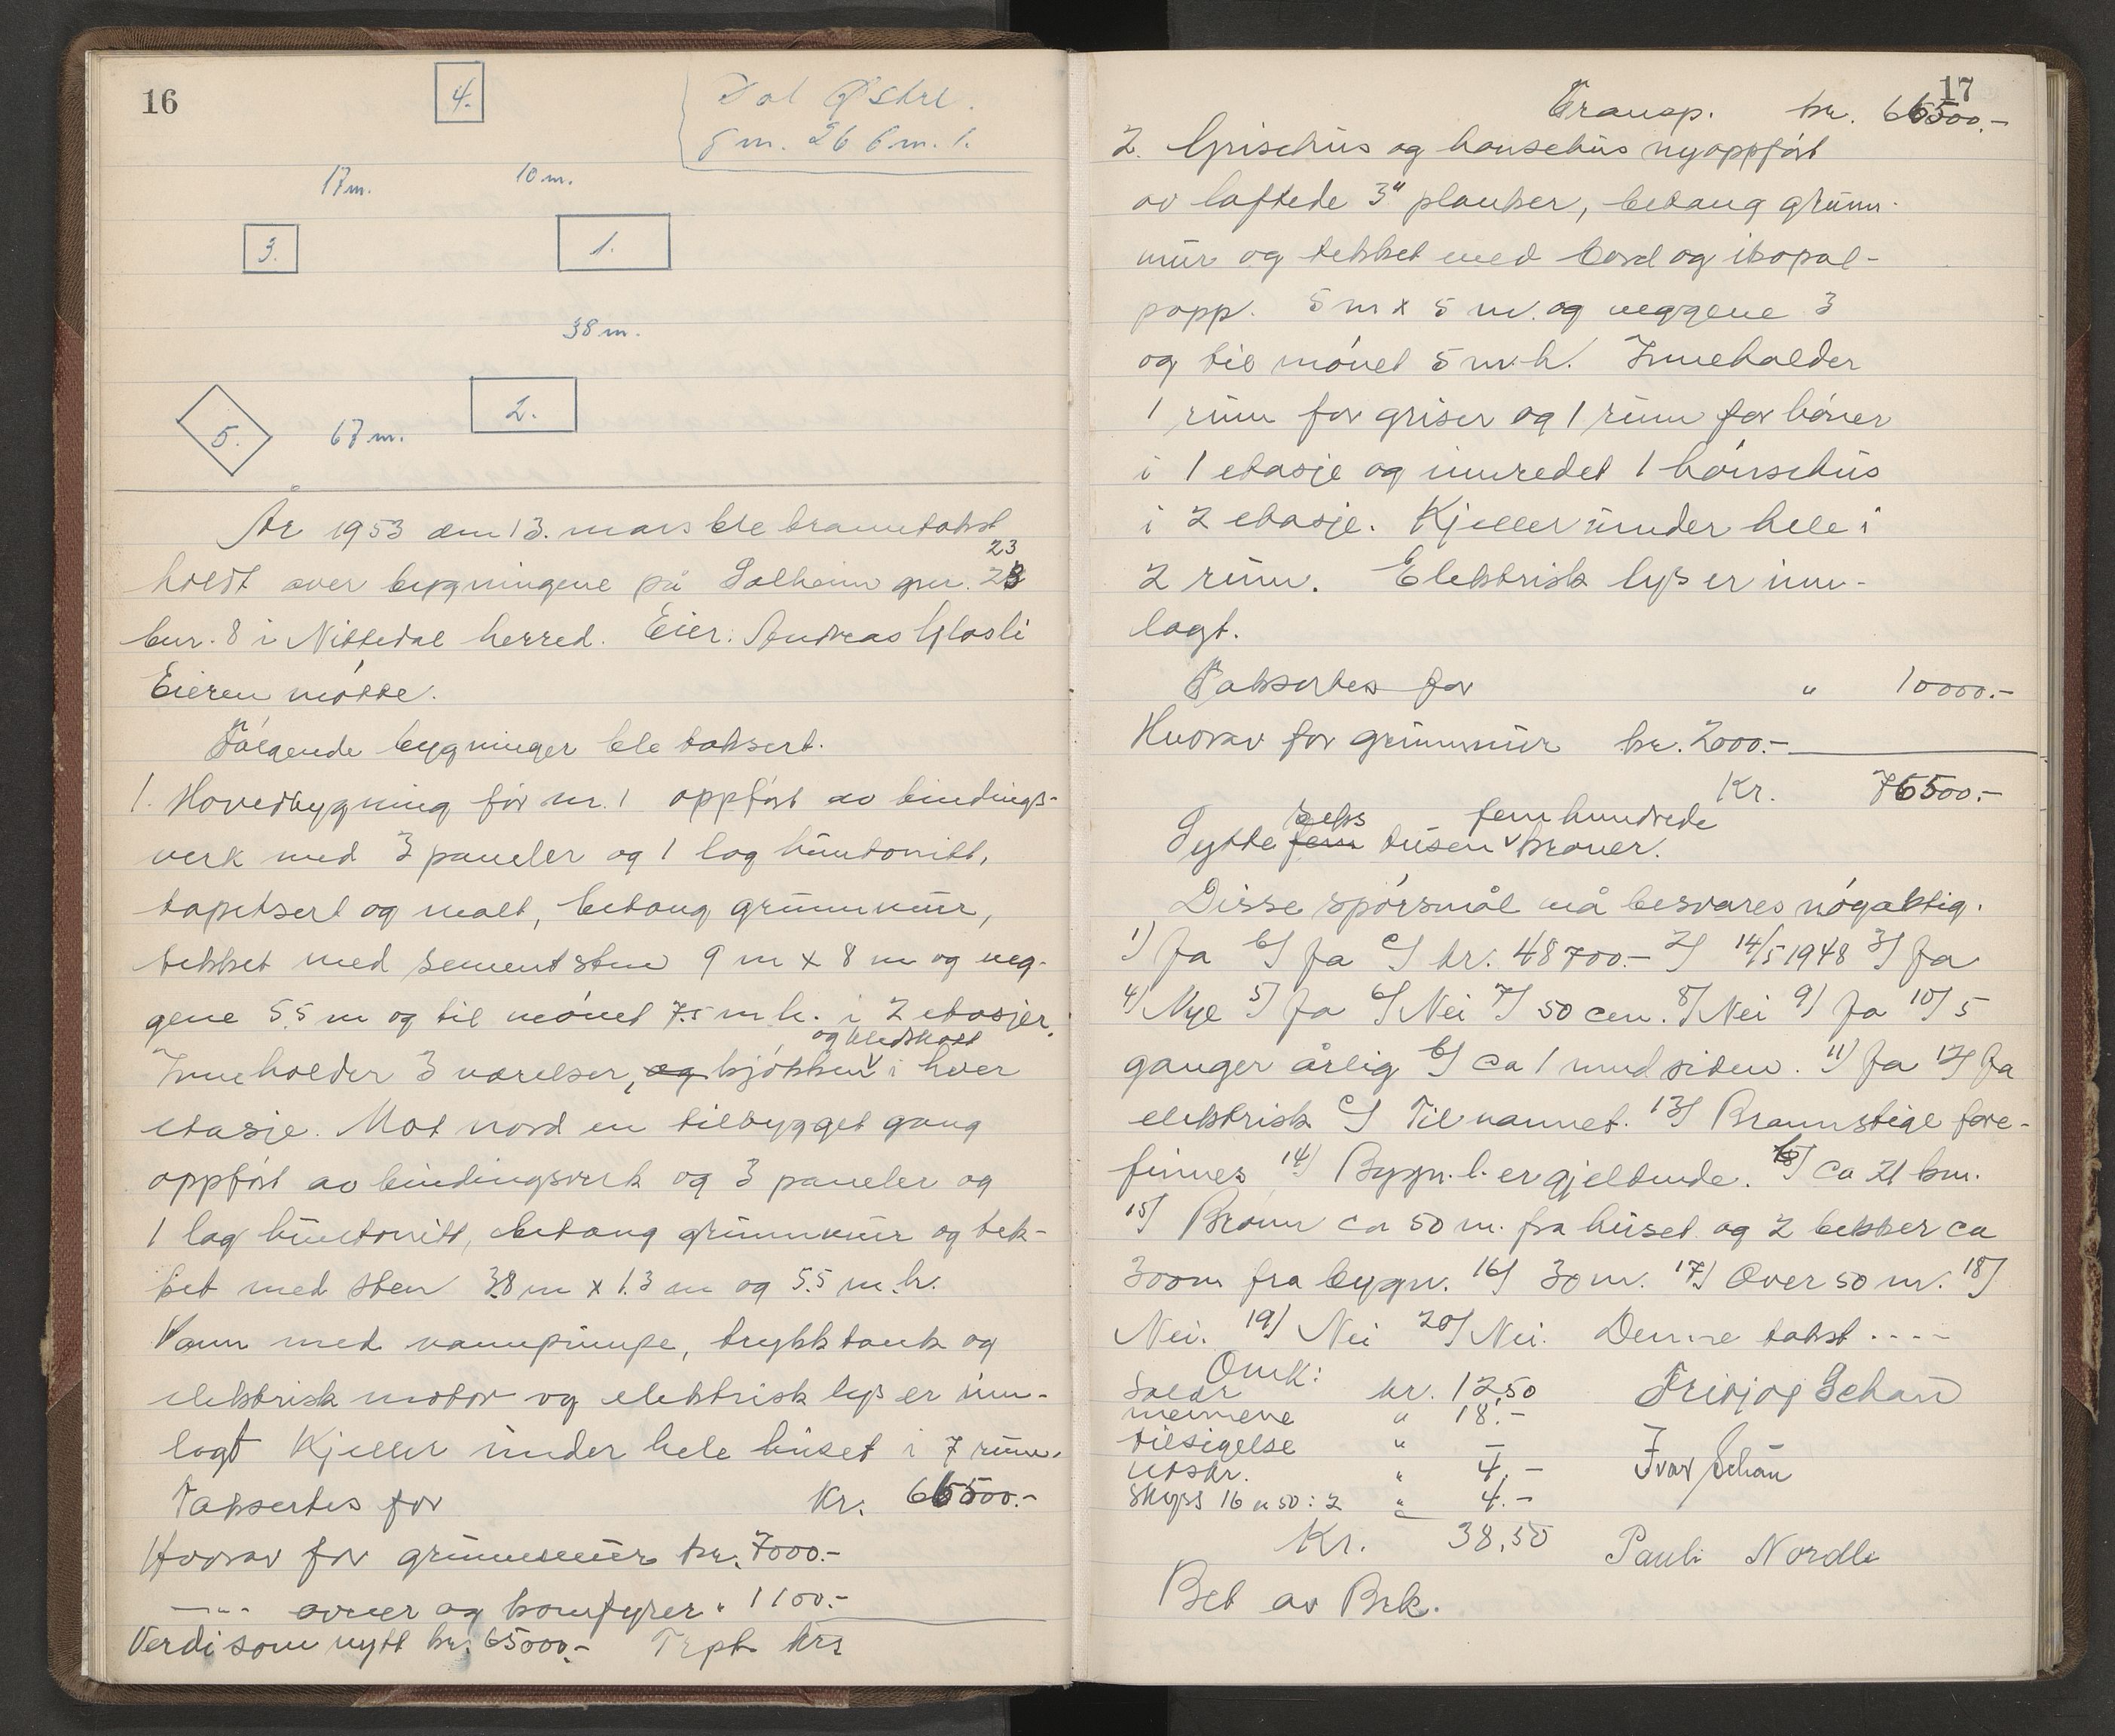 16
4.
Dal Østre.
g m. 26 b m. 1.
17 m.
10 m.
3.
1.
38 m.
5.
67 m.
2.
År 1953 den 13. mars ble branntakst
23
holdt over bygningene på Solheim gnr. 23
bnr. 8 i Nittedal herred. Eier: Andreas Glosli
Eieren møtte.
Følgende bygninger ble taksert.
1. Hovedbygning før nr. 1 oppført av bindings-
verk med 3 paneler og 1 lag huntonitt,
tapetsert og malt, betong grunnmur,
tekket med sementsten 9 m x 8 m og veg-
gene 5.5 m og til mønet 7.5 m.h. i 2 etasjer.
og kledskott
Inneholder 3 værelser, og kjøkken v i hver
etasje. Mot nord en tilbygget gang
oppført av bindingsverk og 3 paneler og
1 lag huntonitt, betong grunnmur og tek-
ket med sten 3.8 m x 1.3 m og 5.5 m.h.
Vann med vannpumpe, trykktank og
elektrisk motor og elektrisk lys er inn-
lagt Kjeller under hele huset i 7 rum.
Taksertes for Kr. 66500.-
Hvorav for grunnmur kr. 7000.-
—"— ovner og komfyrer " 1100.-
Verdi som nytt kr. 65000.- Trpt. krs
17
Transp. kr. 66500.-
2. Grisehus og hønsehus nyoppført
av laftede 3" planker, betong grunn-
mur og tekket med bord og ikopal-
papp. 5 m x 5 m. og veggene 3
og til mønet 5 m.h. Inneholder
1 rum for griser og 1 rum for høner
i 1 etasje og innredet 1 hønsehus
i 2 etasje. Kjeller under hele i
2 rum. Elektrisk lys er inn-
lagt.
Taksertes for " 10000.-
Hvorav for grunnmur kr. 2000.-
Kr. 76500.-
seks fem hundrede
Sytte fem tusen v kroner.
Disse spørsmål må besvares nøgaktig.
1) Ja b) Ja c) kr. 48700.- 2) 14/5 1948 3) Ja
4) Nye 5) Ja 6) Nei 7) 50 cm. 8) Nei 9) Ja 10) 5
ganger årlig b) ca 1 mnd siden. 11) Ja 12) Ja
elektrisk c) Til vannet. 13) Brannstige fore-
finnes 14) Bygn.l. er gjeldende. b) ca 21 km.
15) Brønn ca 50 m. fra huset og 2 bekker ca
300m fra bygn. 16) 30 m. 17) Over 50 m. 18)
Nei. 19) Nei 20) Nei. Denne takst ----
Omk:
Salær kr. 12,50 Fritjof Schau
mennene " 18.-
tilsigelse " —
utskr. " 4.- Ivar Schau
Skyss 16 a 50 : 2 " 4.-
Kr. 38,50 Pauli Nordli
Bet av Brk.